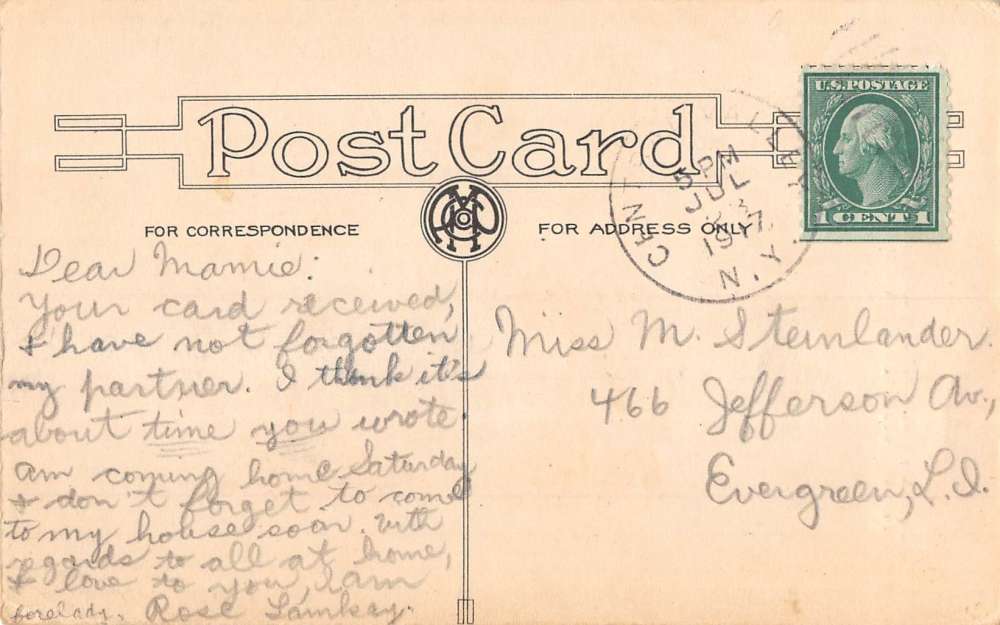 Post Card
FOR CORRESPONDENCE
FOR ADDRESS ONLY
U.S. POSTAGE
1 CENT 1
5 PM
JUL
1917
N.Y.
Dear Mamie:
Your card received,
& have not forgotten
my partner. I think it's
about time you wrote.
am coming home Saturday
& don't forget to come
to my house soon. with
regards to all at home,
& love to you, I am
Rose
Miss M. Steinlander.
466 Jefferson Av.,
Evergreen, L.I.